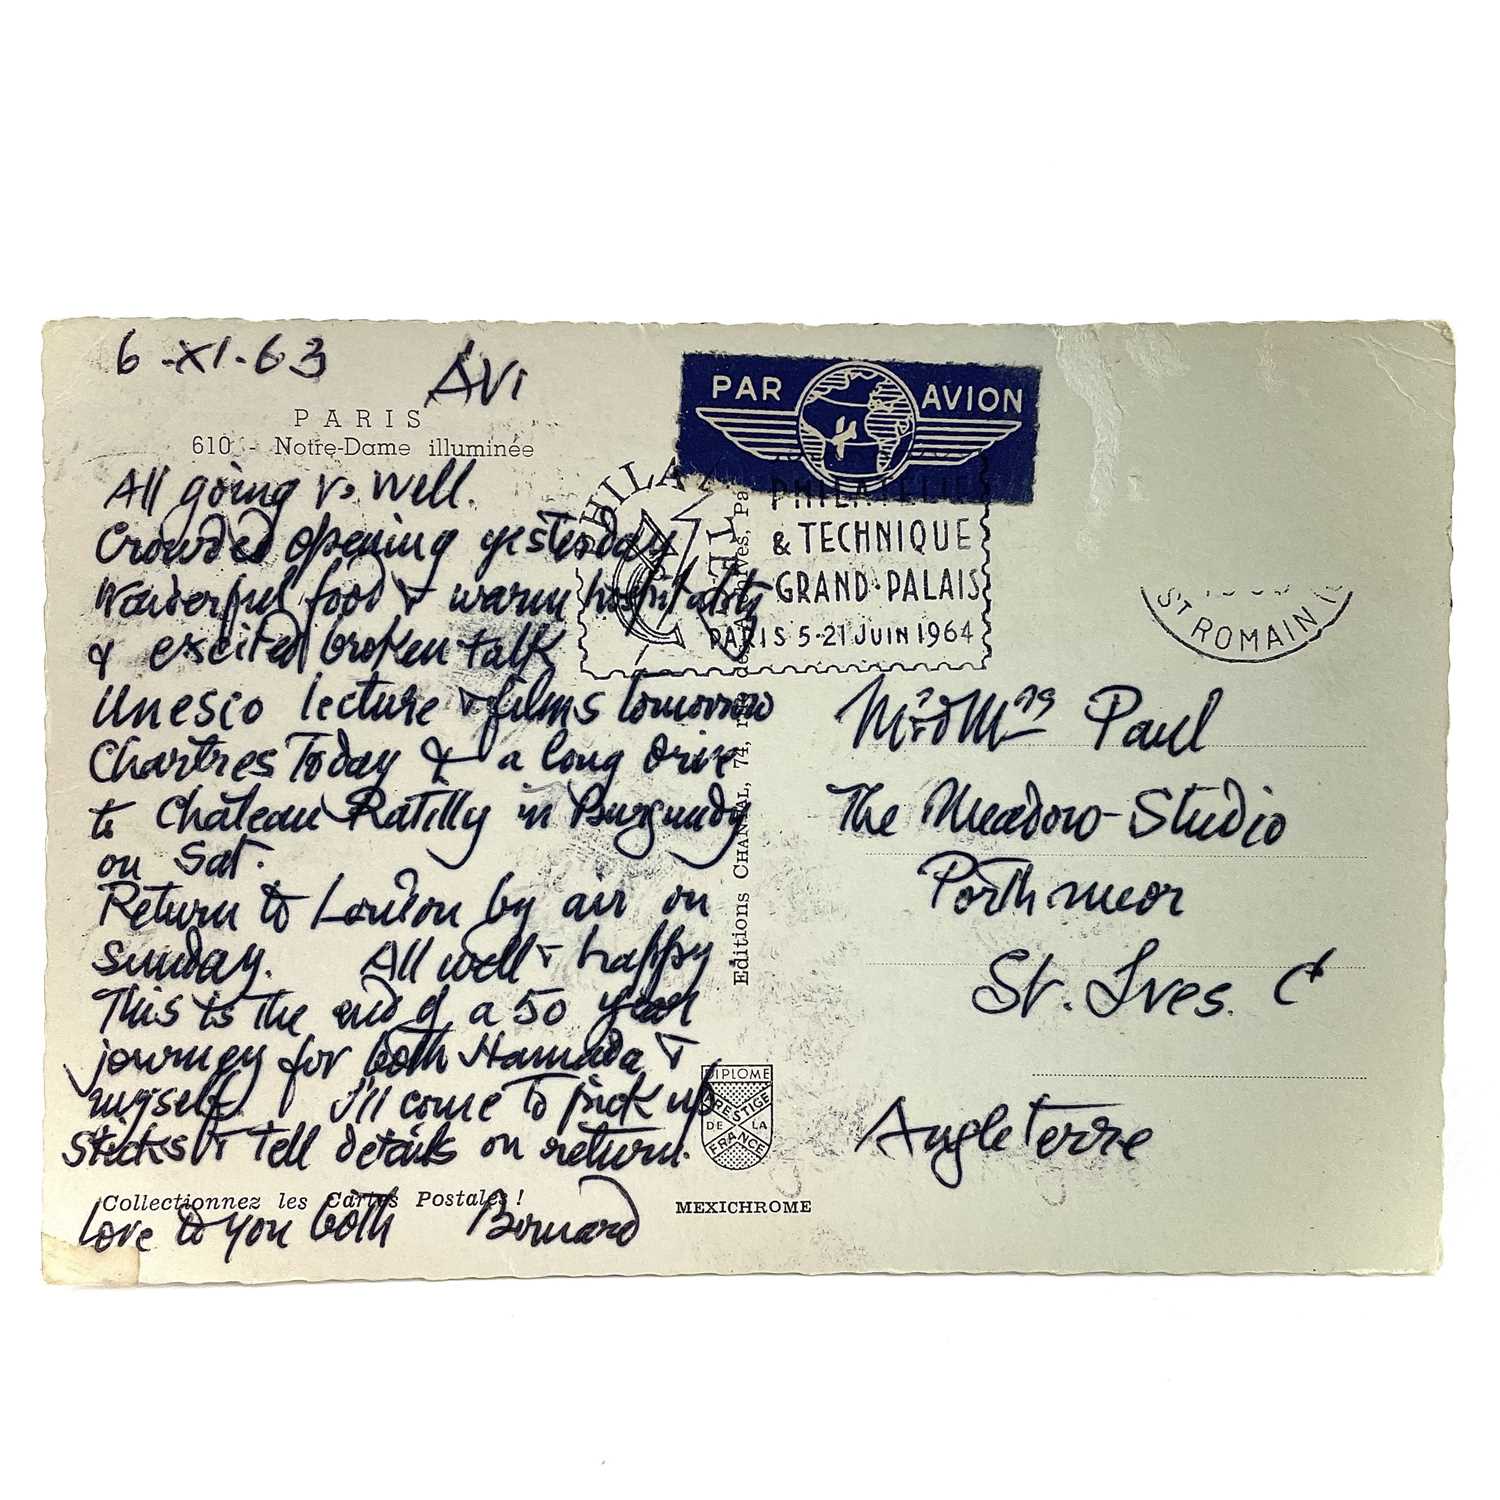 6-XI-63
Avi
PARIS
610 - Notre-Dame illuminée
All going v. well.
Crowded opening yesterday
Wonderful food & warm hospitality
& excited broken talk
Unesco lecture & films tomorrow
Chartres Today & a long drive
to Chateau Ratilly in Burgundy
on Sat.
Return to London by air on
Sunday. All well & happy
This is the end of a 50 year
journey for both Hamada &
myself. I'll come to pick up
sticks & tell details on return.
Collectionnez les Cartes Postales!
Love to you both Bernard
PAR AVION
PHILATEC
PHILATELIE
& TECHNIQUE
GRAND·PALAIS
PARIS 5-21 JUIN 1964
ST ROMAIN
Editions CHANTAL, 74, Archives, Pa
Mr & Mrs Paul
The Meadow-Studio
Porthmeor
St. Ives. C
Angleterre
DIPLOME
PRESTIGE
DE LA
FRANCE
MEXICHROME